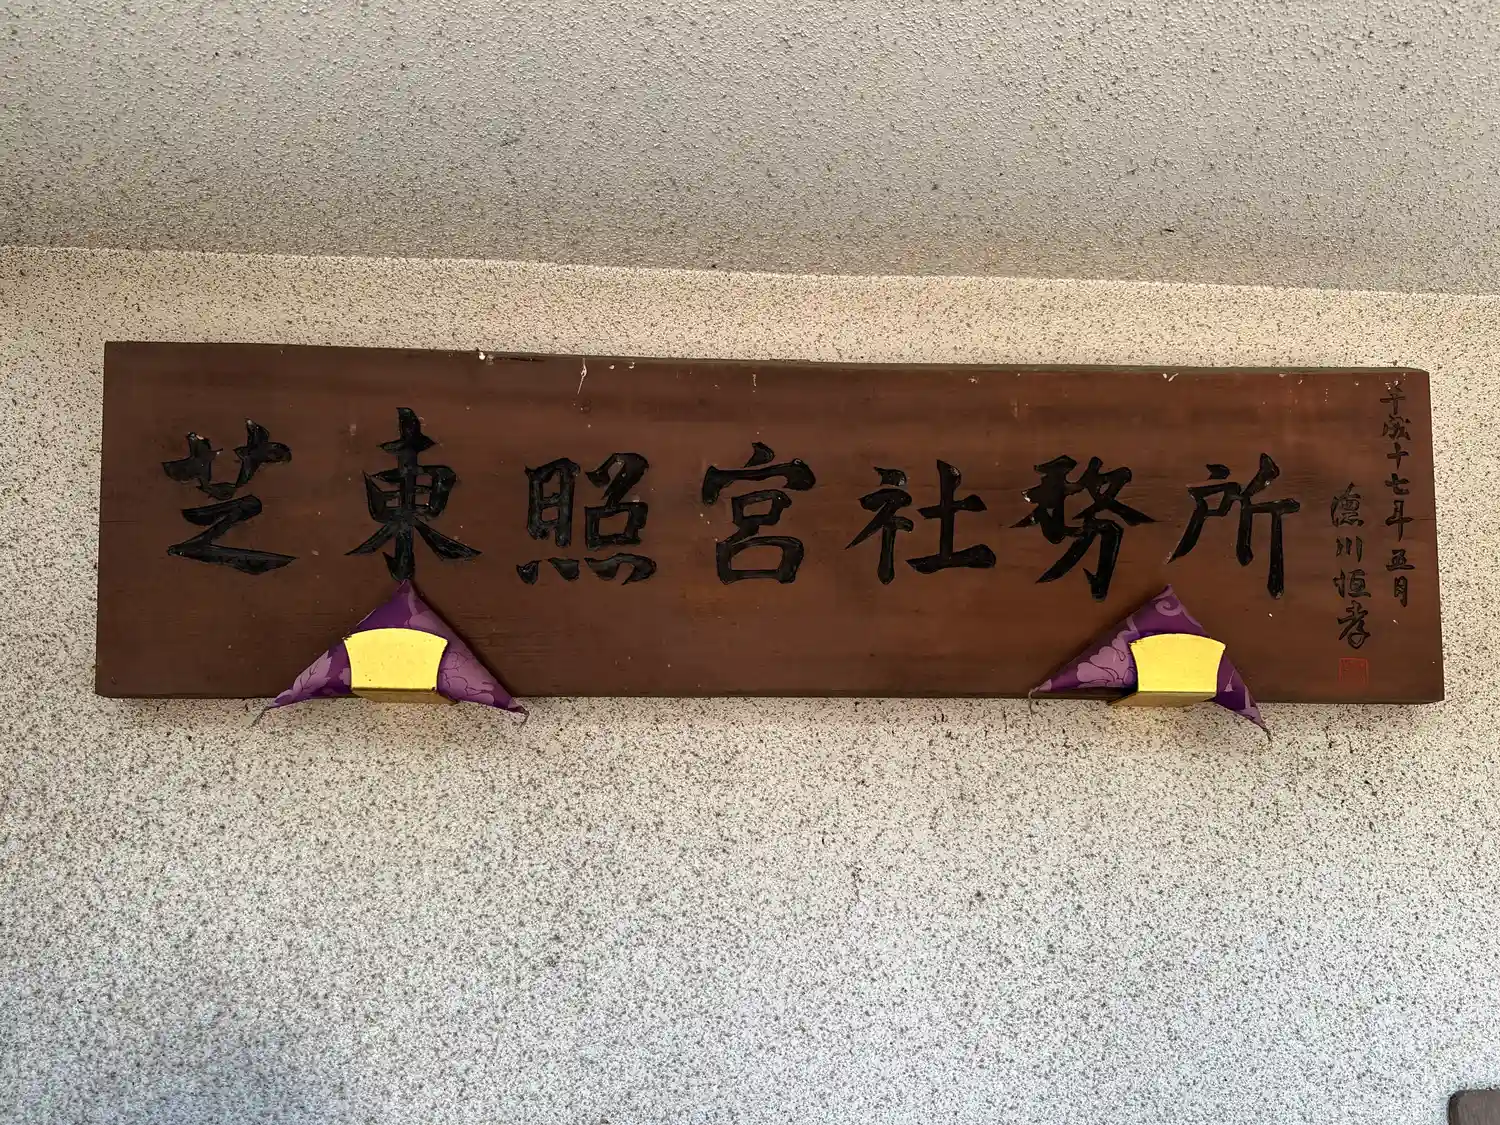 芝東照宮社務所
平成十七年五月
德川恒孝